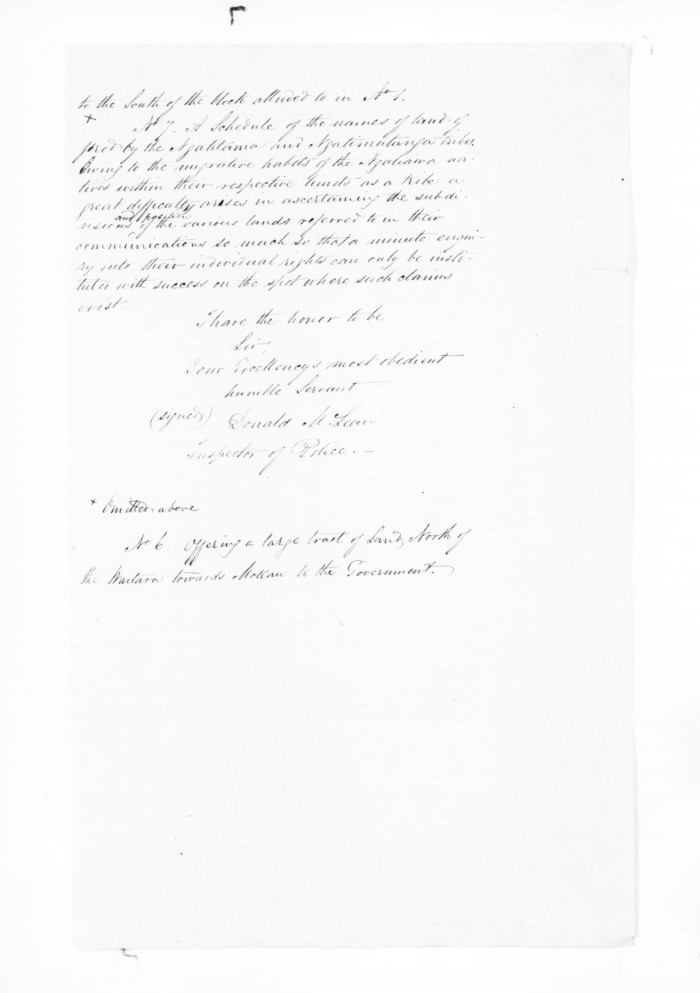 to the South of the block alluded to in No 1.
× No 7. A Schedule of the names of land of-
fered by the Ngatitama and Ngatimutunga tribes.
Owing to the migrative habits of the Ngatiawa na-
tives within their respective limits as a tribe a
great difficulty arises in ascertaining the subdi-
visions and position of the various lands referred to in their
communications so much so that a minute enqui-
ry into their individual rights can only be insti-
tuted with success on the spot where such claims
exist.
I have the honor to be
Sir,
Your Excellency's most obedient
humble Servant
(signed) Donald McLean
Inspector of Police. —
× Omitted above
No 6. Offering a large tract of Land North of
the Waitara towards Mokau to the Government.